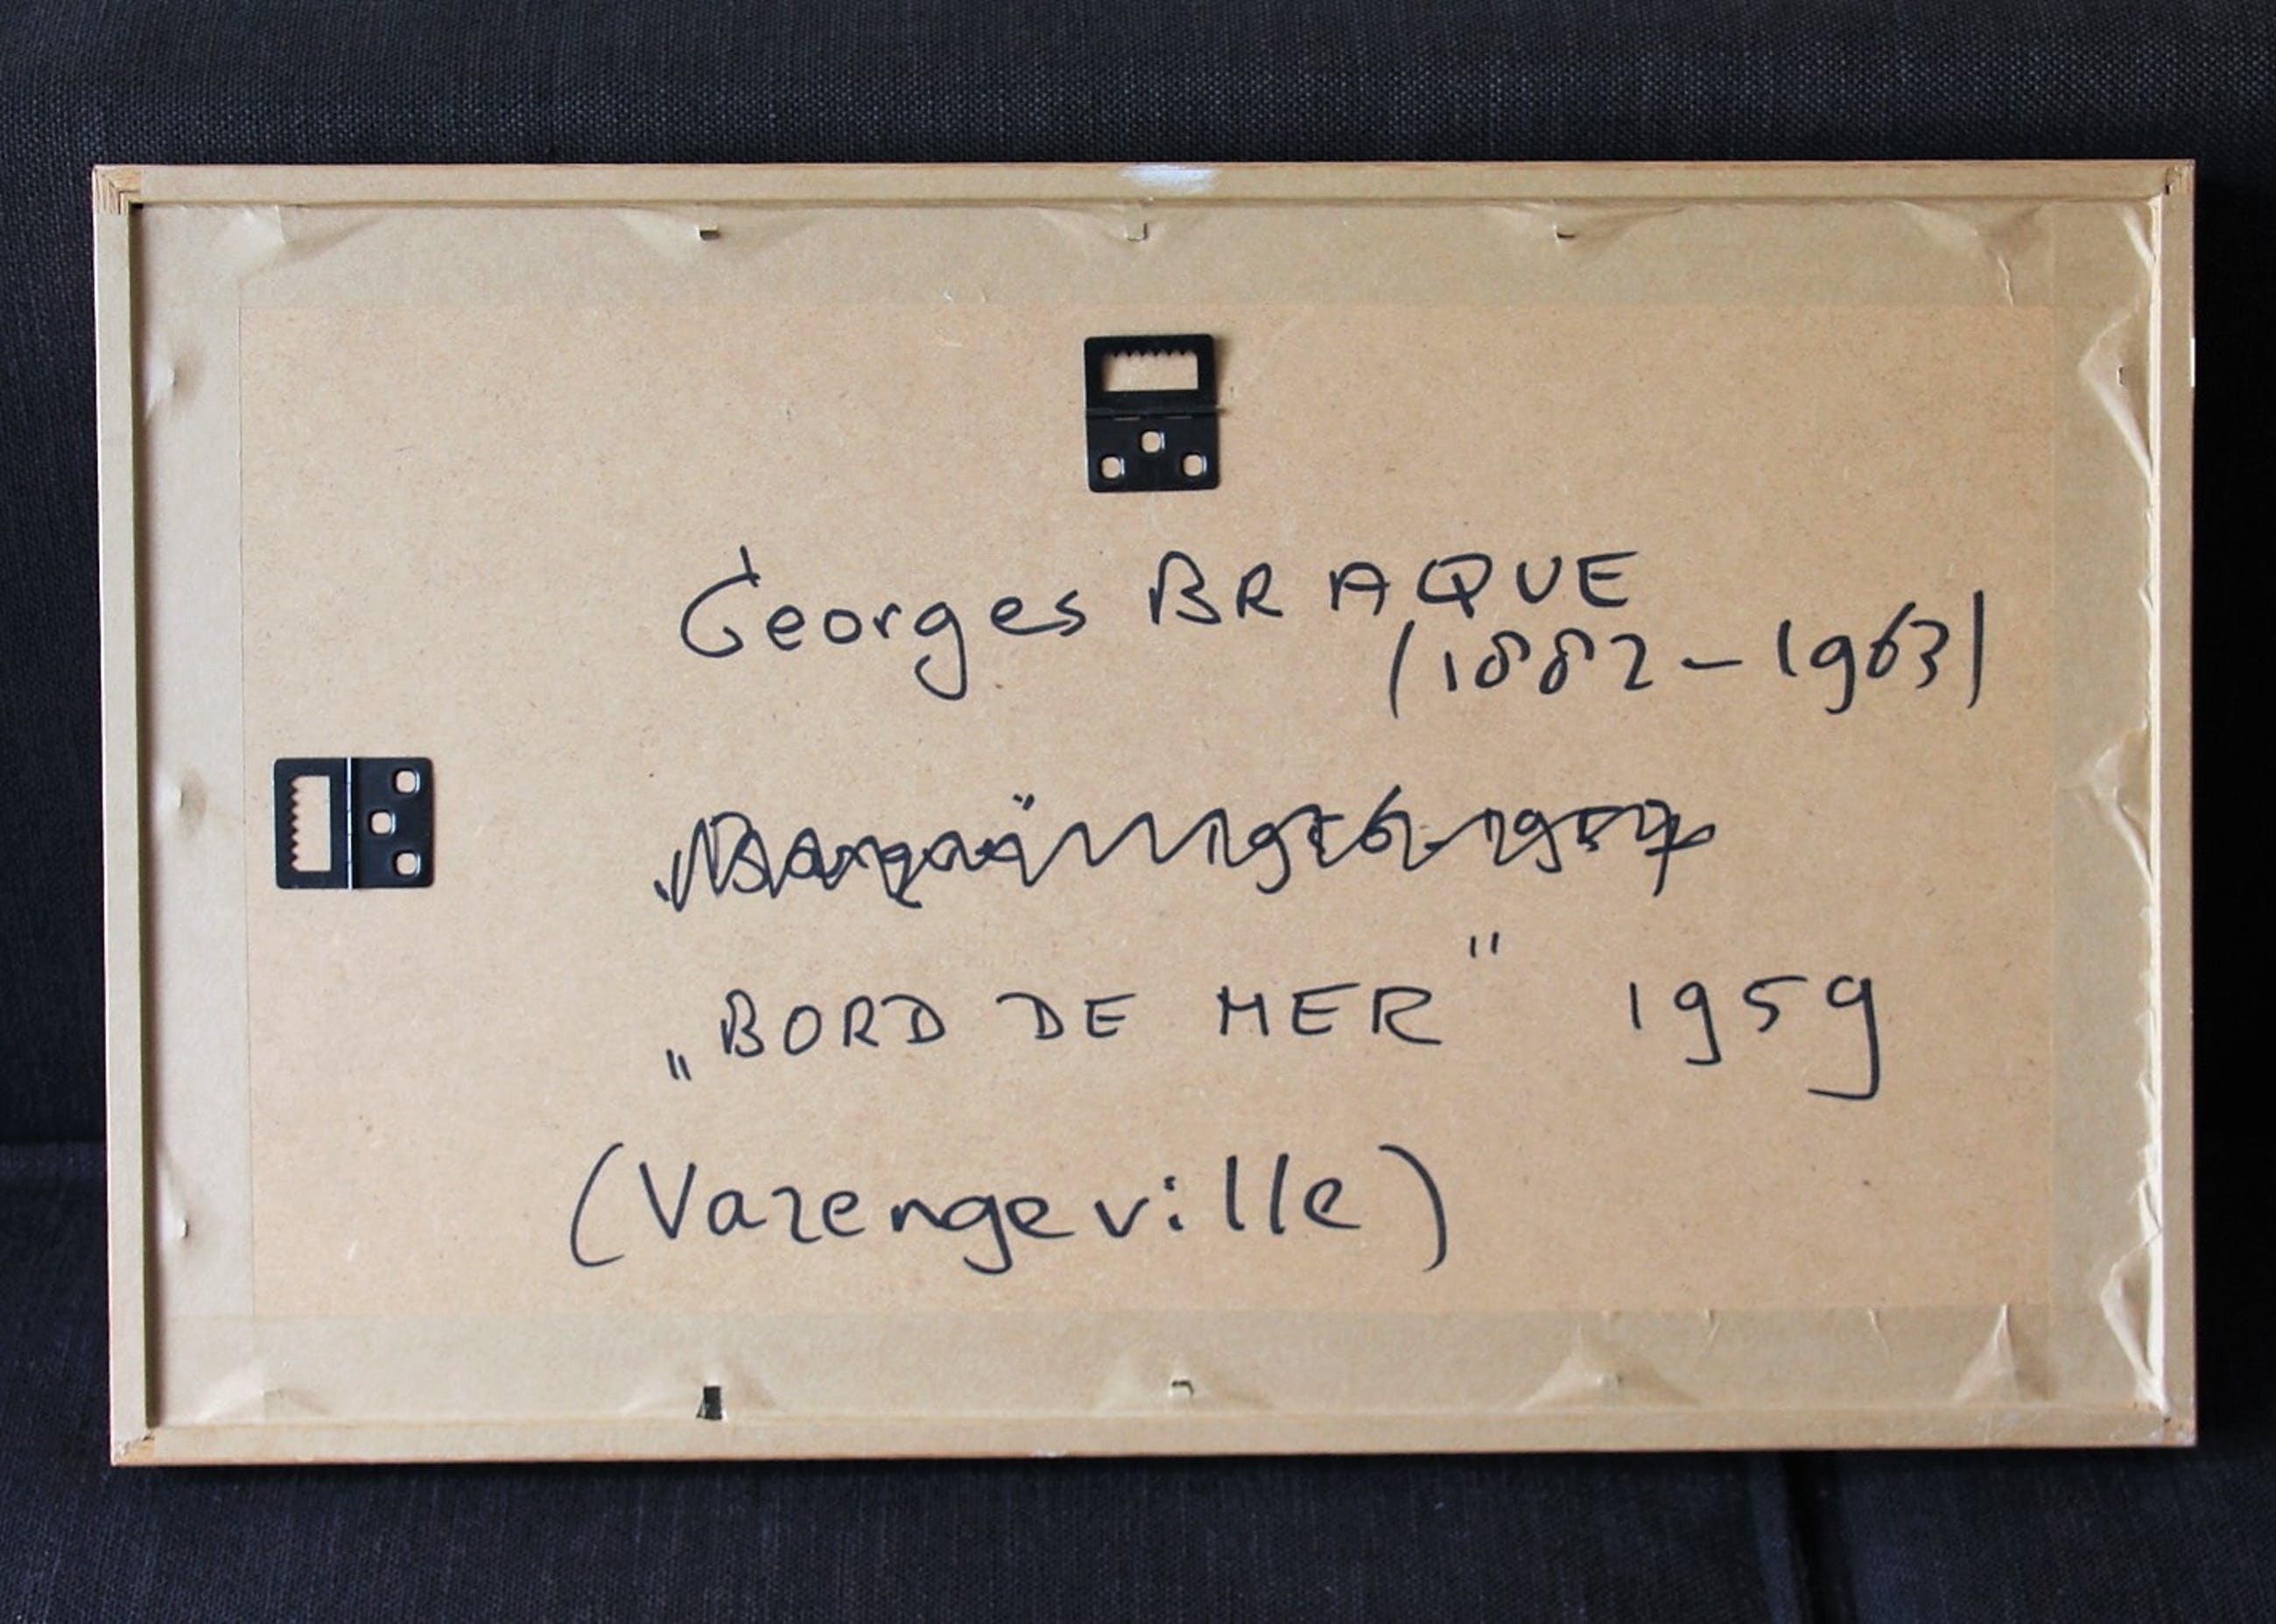 Georges BRAQUE
(1882 – 1963)
1956-1957
„BORD DE MER" 1959
(Varengeville)